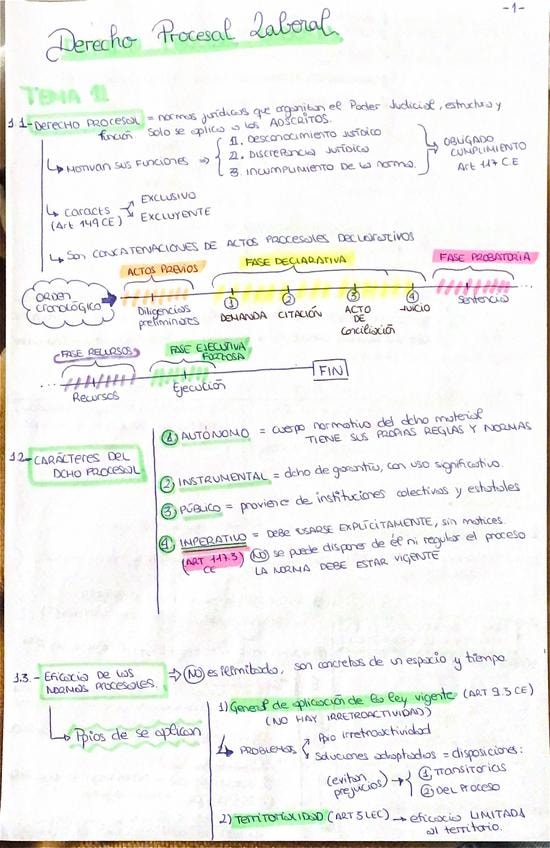 -1-
Derecho Procesal Laboral
TEMA 1
1.1- DERECHO PROCESAL = normas jurídicas que organizan el Poder Judicial, estructura y
función Solo se aplica a los ADSCRITOS.
↳ MOTIVAN SUS FUNCIONES ⇒ 1. DESCONOCIMIENTO JURÍDICO
2. DISCREPANCIA JURÍDICA
3. INCUMPLIMIENTO DE LA NORMA.
→ OBLIGADO
CUMPLIMIENTO
Art 117 CE
↳ CARACTS EXCLUSIVO
(Art 149 CE) EXCLUYENTE
↳ SON CONCATENACIONES DE ACTOS PROCESALES DECLARATIVOS
ACTOS PREVIOS FASE DECLARATIVA FASE PROBATORIA
ORDEN
CRONOLÓGICO
Diligencias
preliminares
① DEMANDA ② CITACIÓN ③ ACTO
DE
Conciliación
④ JUICIO
Sentencia
FASE RECURSOS FASE EJECUTIVA
FORZOSA
... Recursos Ejecución FIN
1.2- CARÁCTERES DEL
DCHO PROCESAL
① AUTÓNOMO = cuerpo normativo del dcho material
TIENE SUS PROPIAS REGLAS Y NORMAS
② INSTRUMENTAL = dcho de garantía, con uso significativo.
③ PÚBLICO = proviene de instituciones colectivas y estatales
④ IMPERATIVO = DEBE USARSE EXPLÍCITAMENTE, sin matices.
(ART 117.3) (NO) se puede disponer de él ni regular el proceso
CE LA NORMA DEBE ESTAR VIGENTE
1.3.- EFICACIA DE LAS
NORMAS PROCESALES.
⇒ (NO) es ilimitada, son concretas de un espacio y tiempo
↳ Ppios de se aplican
1) General de aplicación de la ley vigente (ART 9.3 CE)
(NO HAY IRRETROACTIVIDAD)
↳ PROBLEMAS Ppio irretroactividad
Soluciones adoptadas = disposiciones:
(evitan
prejuicios) → ① Transitorias
② Del Proceso
2) TERRITORIALIDAD (ART 3 LEC) → eficacia LIMITADA
al territorio.